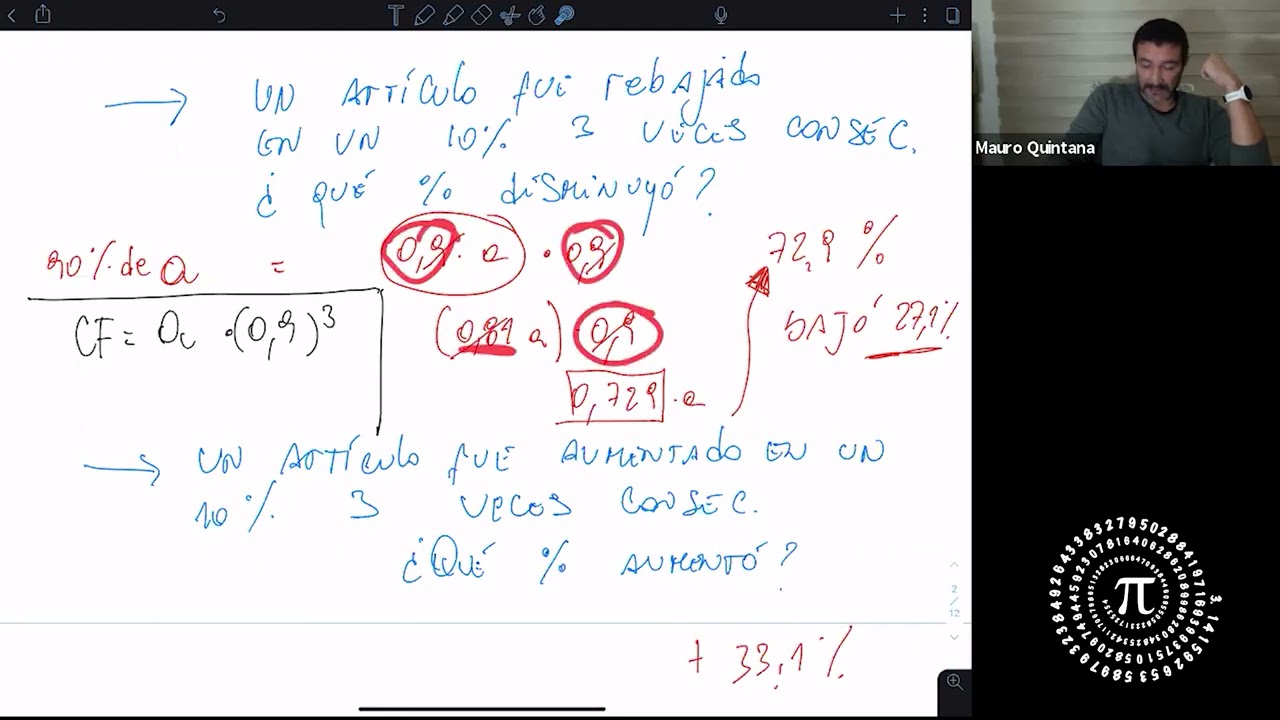 → UN ARTÍCULO FUE rebajado
EN UN 10% 3 VECES CONSEC.
¿QUÉ % DISMINUYÓ?
90% de a = 0,9 · a · 0,9
(0,81 a) 0,9
0,729 · a
72,9 %
BAJÓ 27,1%
CF = Oc · (0,9)³
→ UN ARTÍCULO FUE AUMENTADO EN UN
10% 3 VECES CONSEC.
¿QUÉ % AUMENTÓ?
+ 33,1%
Mauro Quintana
2
/
12
π